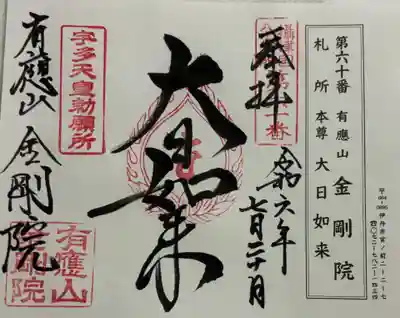 第六十番 有應山 金剛院
札所 本尊 大日如来
奉拝
令和六年
七月二十日
大日如来
宇多天皇勅願所
有應山 金剛院
有應山
金剛院